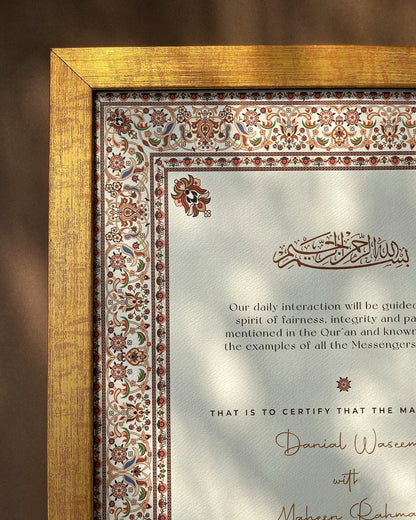 بسم الله الرحمن الرحيم
Our daily interaction will be guided
spirit of fairness, integrity and
mentioned in the Qur'an and known
the examples of all the Messengers
THAT IS TO CERTIFY THAT THE
Danial Waseem
with
Maheen Rahma